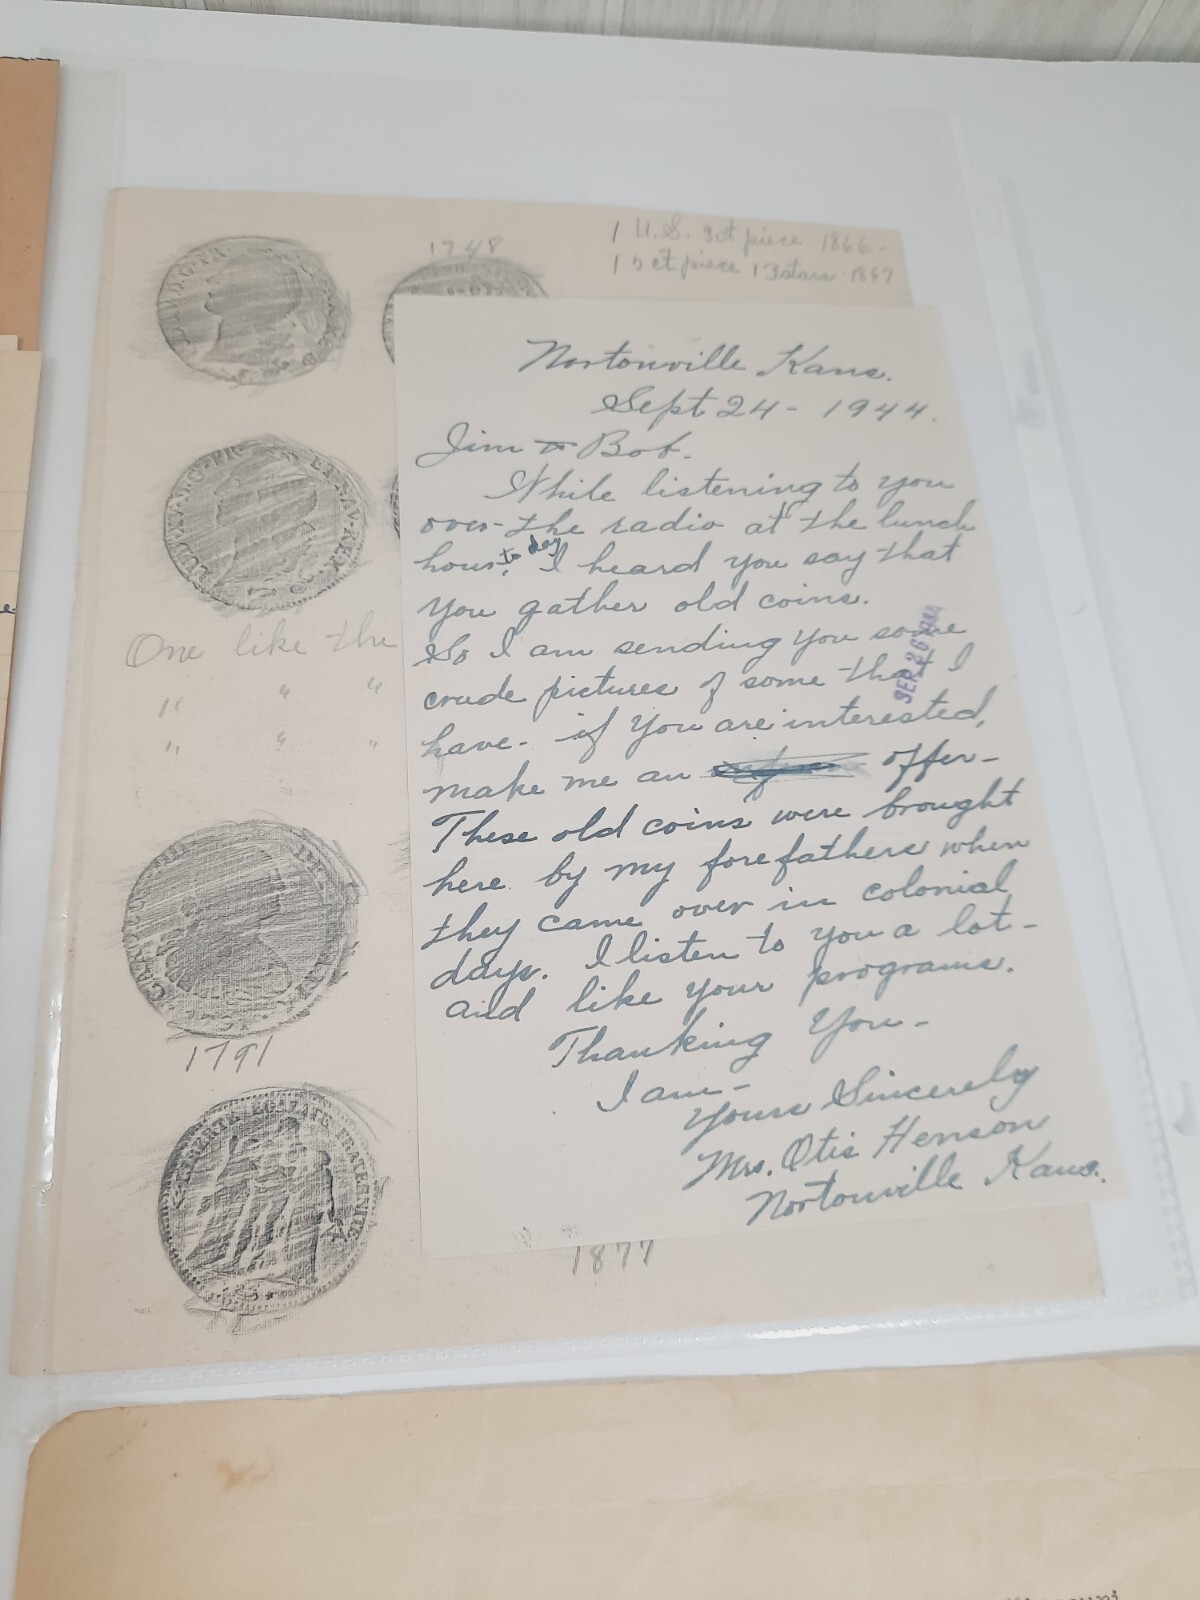 1748
1 U.S. 3ct piece 1866-
1 5ct piece 13 stars 1867
One like the
" " "
" " "
1791
LIBERTE EGALITE FRATERNITE
1877
Nortonville Kans.
Sept 24 - 1944.
Jim & Bob.
While listening to you
over the radio at the lunch
hour, to day I heard you say that
you gather old coins.
So I am sending you some
crude pictures of some that I
have - if you are interested,
make me an offer -
These old coins were brought
here by my forefathers when
they came over in colonial
days. I listen to you a lot -
and like your programs.
Thanking You -
I am -
Yours Sincerely
Mrs. Otis Henson
Nortonville Kans.
SEP 26 1944